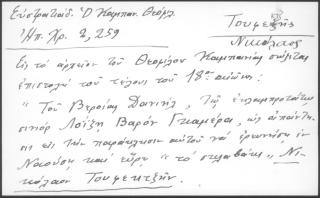 Εὐστρατιάδ. Ὁ Καμπαν. Θεόφιλ.
Ἠπ. Χρ. 2, 259
Τουφεξῆς
Νικόλαος
Εἰς τὸ ἀρχεῖον τοῦ Θεοφίλου Καμπανίας σώζεται
ἐπιστολὴ τοῦ τέλους τοῦ 18ου αἰῶνος:
"Τοῦ Βεροίας Δανιήλ, Τῷ ἐκλαμπροτάτῳ
σινιὸρ Λοΐζῃ Βαρὸν Γκαμέρᾳ, ὡς ἀπάντη-
σις εἰς τὴν παράκλησιν αὐτοῦ νὰ ἐρευνήσῃ ἐν
Ναούσῃ καὶ εὕρῃ "τὸ
Νι-
κόλαον Τουφεκτζῆν.